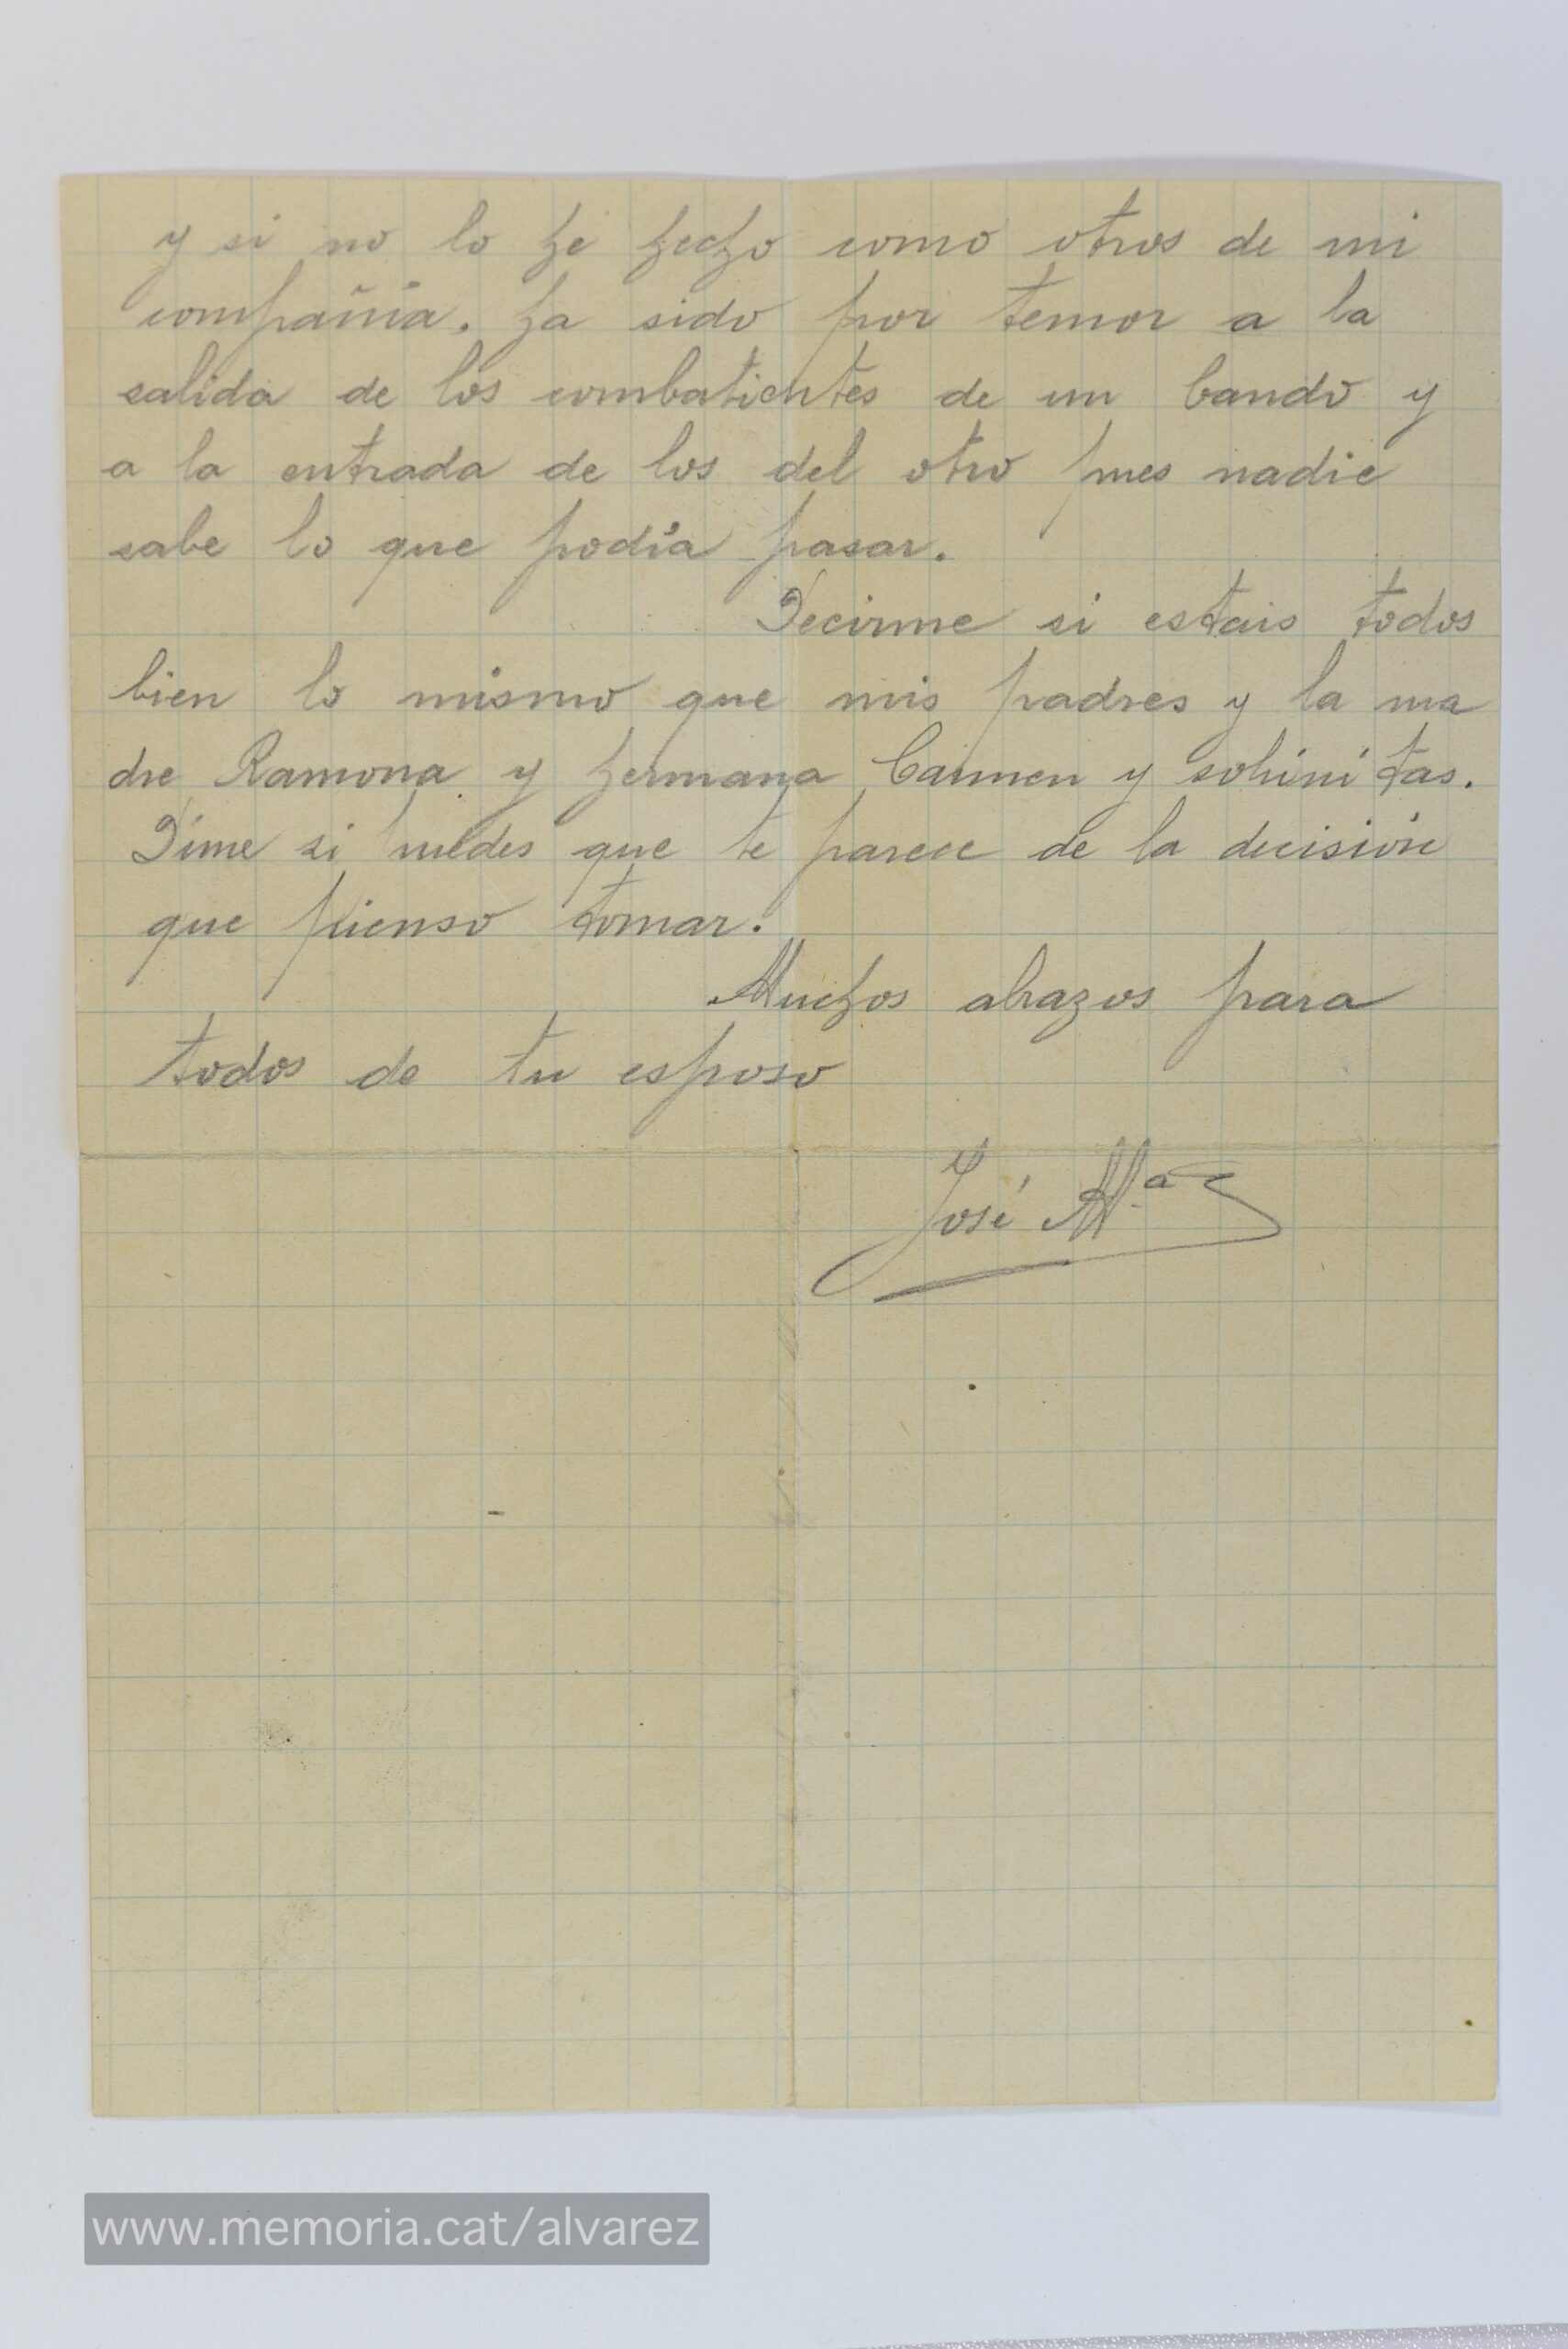 y si no lo he hecho como otros de mi
compañía. ha sido por temor a la
salida de los combatientes de un bando y
a la entrada de los del otro pues nadie
sabe lo que podía pasar.
Decirme si estais todos
bien lo mismo que mis padres y la ma
dre Ramona y hermana Carmen y sobrinitas.
Dime si puedes que te parece de la decisión
que pienso tomar.
Muchos abrazos para
todos de tu esposo
José Mª
www.memoria.cat/alvarez